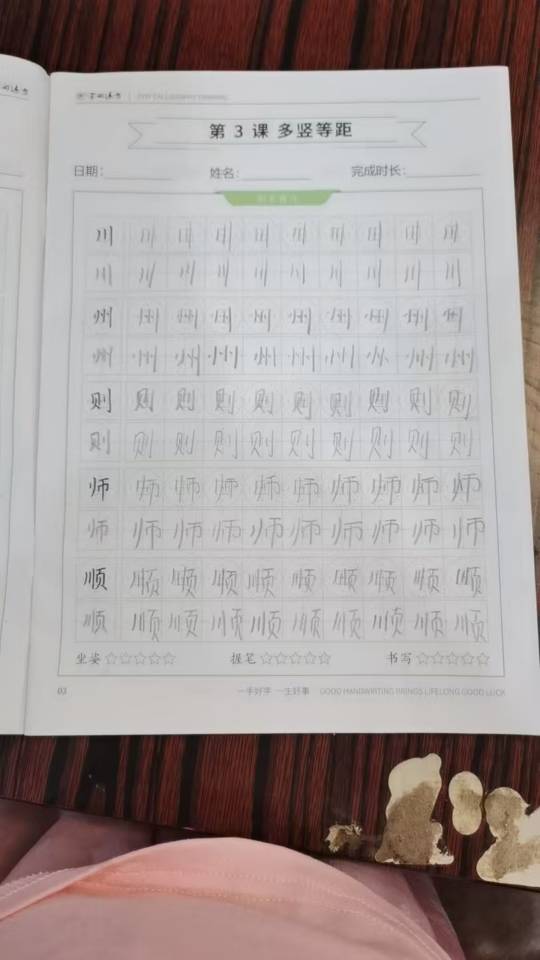 第 3 课 多竖等距
日期： 姓名： 完成时长：
川 川 川 川 川 川 川 川 川 川
川 川 川 川 川 川 川 川 川 川
州 州 州 州 州 州 州 州 州 州
州 州 州 州 州 州 州 州 州
则 则 则 则 则 则 则 则 则 则
则 则 则 则 则 则 则 则 则 则
师 师 师 师 师 师 师 师 师 师
师 师 师 师 师 师 师 师 师 师
顺 顺 顺 顺 顺 顺 顺 顺 顺 顺
顺 顺 顺 顺 顺 顺 顺 顺 顺 顺
坐姿 握笔 书写
03 一手好字 一生好事 GOOD HANDWRITING BRINGS LIFELONG GOOD LUCK